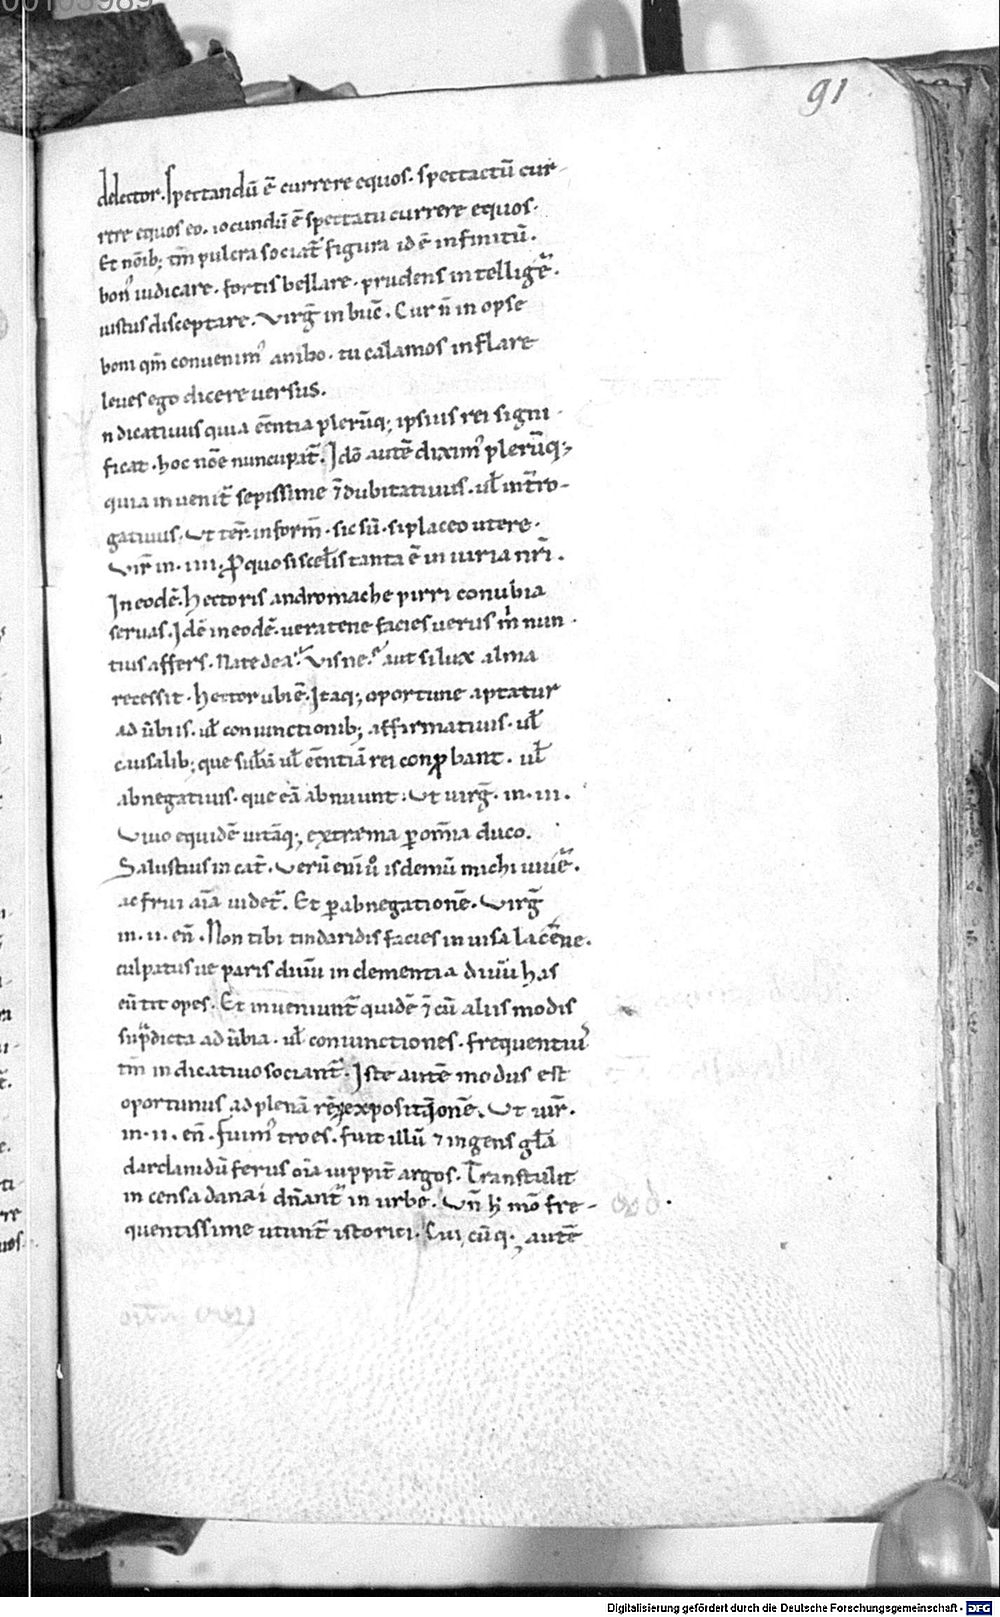 91
delector. Spectandū ē currere equos. spectatū cur-
rere equos eo. iocundū ē spectatu currere equos.
Et nōib; tm̄ pulcra sociat᷑ figura id ē infinitū.
bon᾽ iudicare. fortis bellare. prudens intellige᷑.
iustus disceptare. Virḡ in buc̄. Cur n̄ in opse
boni qm̄ convenim᾽ anibo. tu calamos inflare
leves ego dicere versus.
ndicativus quia eēntia plerūq; ipsius rei signi-
ficat. hoc nōe nuncupat᷑. Idō autē dixim᾽ plerūq;
quia invenit᷑ sepissime ⁊ dubitativus. ul̄ int̄ro-
gativus. Ut ter̄. in form̄. sic sū. si placeo utere.
Vir̄ in. IIII. ꝓ quo si scel̄is tanta ē iniuria nr̄i.
In eodē. hectoris andromache pirri conubia
servas. Idē in eodē. verate ne facies verus m̄ nun-
tius affers. Nate dea. Visne. aut si lux alma
recessit. hector ubi ē. Itaq; oportune aptatur
adūbiis. ul̄ coniunctionib; affirmativis. ul̄
causalib; que sub̄ā ul̄ eēntiā rei conꝓbant. ul̄
abnegativis. que eā abnuunt. Ut virḡ. in. III.
Vivo equidē vitāq; extrema ꝑ om̄ia duco.
Salustius in cat̄. Verū enī ů is demū michi vive᷑.
ac frui aīa videt᷑. Et ꝑ abnegationē. Virḡ
in. II. en̄. Non tibi tindaridis facies invisa lacēne.
culpatusve paris divū inclementia divū has
evt̄it opes. Et inveniunt᷑ quidē ⁊ cū aliis modis
sup̄dicta adūbia. ul̄ coniunctiones. frequentiu᾽
tm̄ indicativo sociant᷑. Iste autē modus est
oportunus ad plenā rerū expositionē. Ut vir̄.
in. II. en̄. fuim᾽ troes. fuit illū ⁊ ingens gl̄a
dardanidū ferus oīa iuppit̄ argos. Transtulit
incensa danai dn̄ant᷑ in urbe. Un̄ h̄ mō fre-
quentissime utunt᷑ istorici. Cui cūq; autē
Digitalisierung gefördert durch die Deutsche Forschungsgemeinschaft - DFG